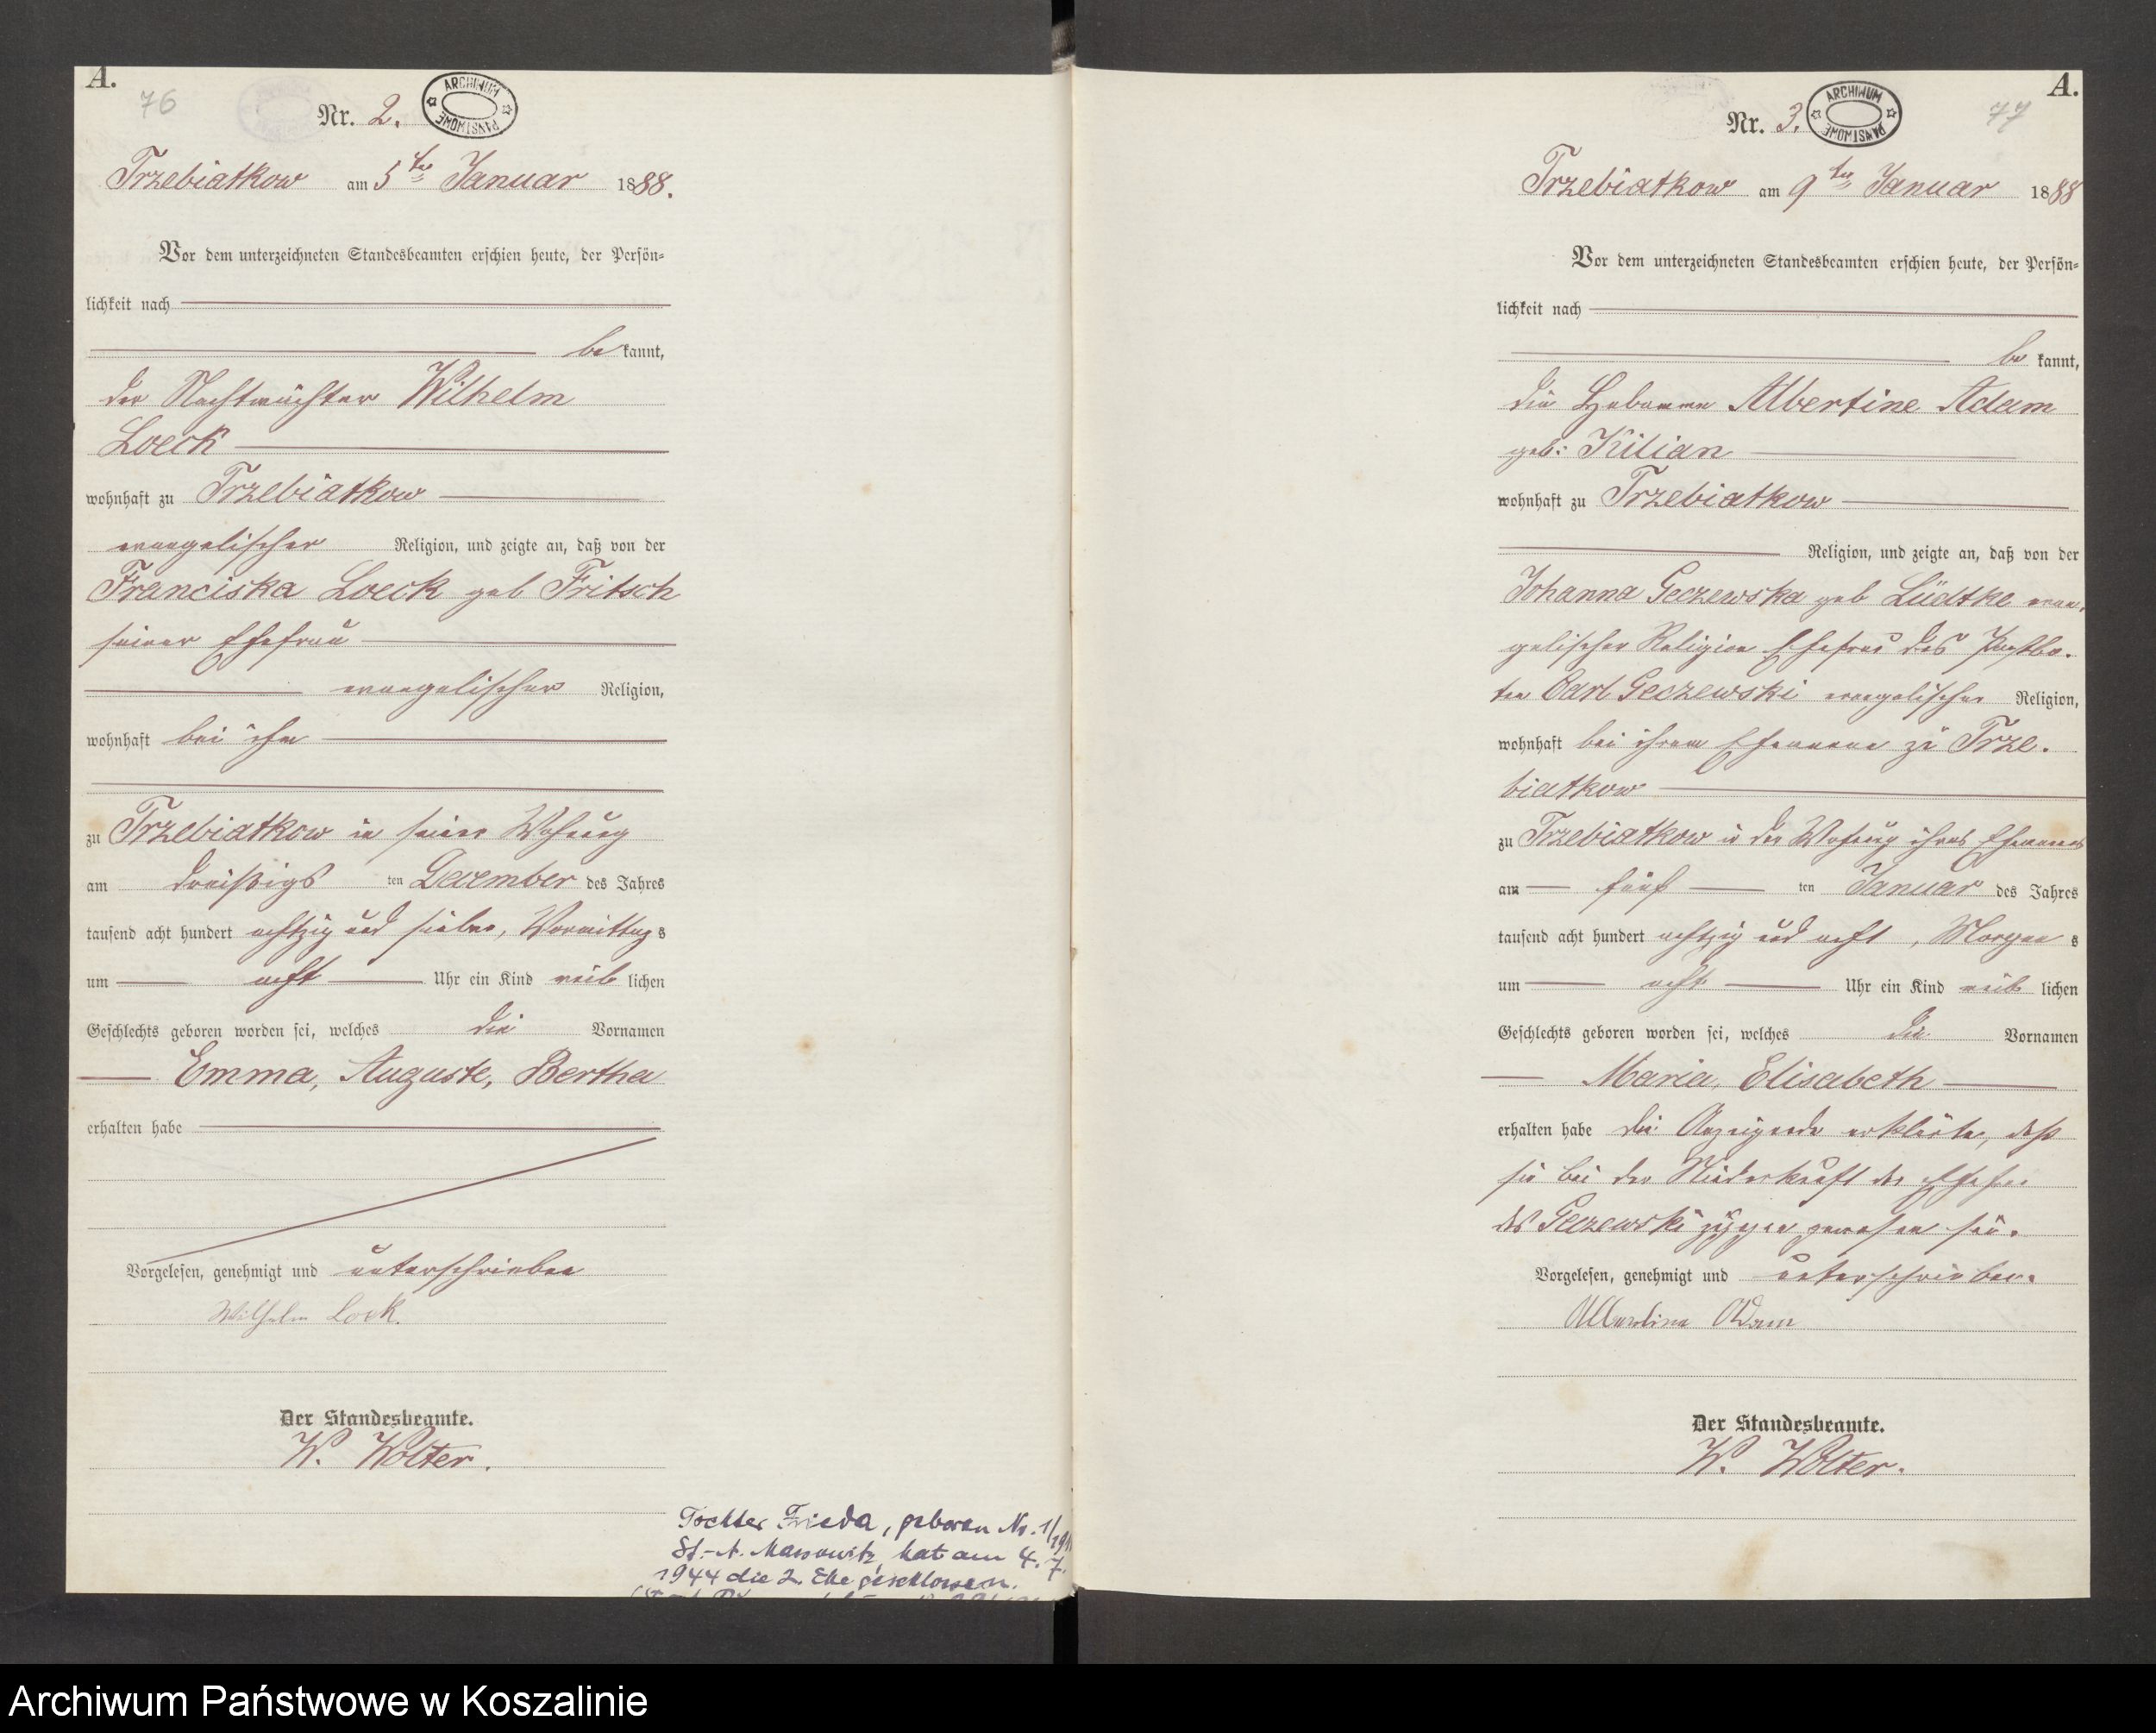 A.
76
Nr. 2.
ARCHIWUM PAŃSTWOWE
Trzebiatkow am 5ten Januar 1888.
Vor dem unterzeichneten Standesbeamten erschien heute, der Persön-
lichkeit nach
be kannt,
der Nachtwächter Wilhelm
Loeck
wohnhaft zu Trzebiatkow
evangelischer Religion, und zeigte an, daß von der
Franciska Loeck geb Fritsch
seiner Ehefrau
evangelischer Religion,
wohnhaft bei ihm
zu Trzebiatkow in seiner Wohnung
am dreißigs ten Dezember des Jahres
tausend acht hundert achtzig und sieben, Vormittag s
um acht Uhr ein Kind weib lichen
Geschlechts geboren worden sei, welches die Vornamen
Emma, Auguste, Bertha
erhalten habe
Vorgelesen, genehmigt und unterschrieben
Wilhelm Lock.
Der Standesbeamte.
W. Wolter.
Tochter Frieda, geboren Nr. 1/
St.-A. Massowitz, hat am 4. 7.
1944 die 2. Ehe geschlossen.
A.
77
Nr. 3.
ARCHIWUM PAŃSTWOWE
Trzebiatkow am 9ten Januar 1888
Vor dem unterzeichneten Standesbeamten erschien heute, der Persön-
lichkeit nach
be kannt,
die Hebamme Albertine Adam
geb: Kilian
wohnhaft zu Trzebiatkow
Religion, und zeigte an, daß von der
Johanna Geczewska geb Lüdtke evan-
gelischer Religion Ehefrau des Postbo-
ten Carl Geczewski evangelischer Religion,
wohnhaft bei ihrem Ehemanne zu Trze-
biatkow
zu Trzebiatkow in der Wohnung ihres Ehemannes
am fünf ten Januar des Jahres
tausend acht hundert achtzig und acht, Morgen s
um acht Uhr ein Kind weib lichen
Geschlechts geboren worden sei, welches die Vornamen
Maria, Elisabeth
erhalten habe die Anzeigende erklärte, daß
sie bei der Niederkunft der Ehefrau
des Geczewski zugegen gewesen sei.
Vorgelesen, genehmigt und unterschrieben.
Albertine Adam
Der Standesbeamte.
W. Wolter.
Archiwum Państwowe w Koszalinie